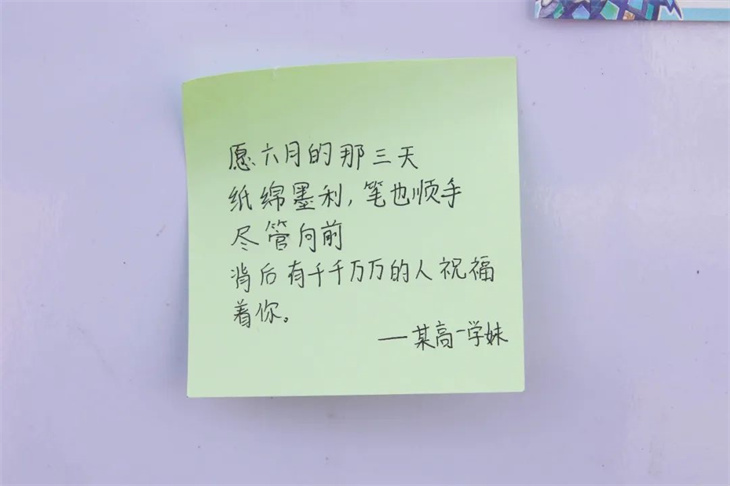 愿六月的那三天
纸绵墨利,笔也顺手
尽管向前
背后有千千万万的人祝福
着你。
——某高一学妹